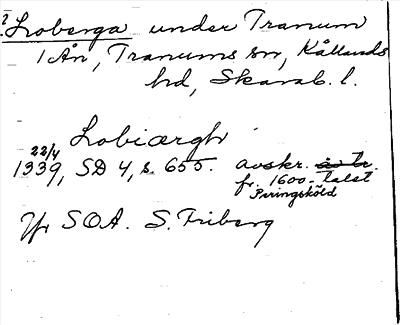 Loberga under Tranum
1 Ån, Tranums sn, Kållands
hd, Skarab. l.
Lobiærgh
22/4
1339, SD 4, s. 655. avskr. av br.
fr. 1600-talet
Peringsköld
Yfr SOA. S. Friberg